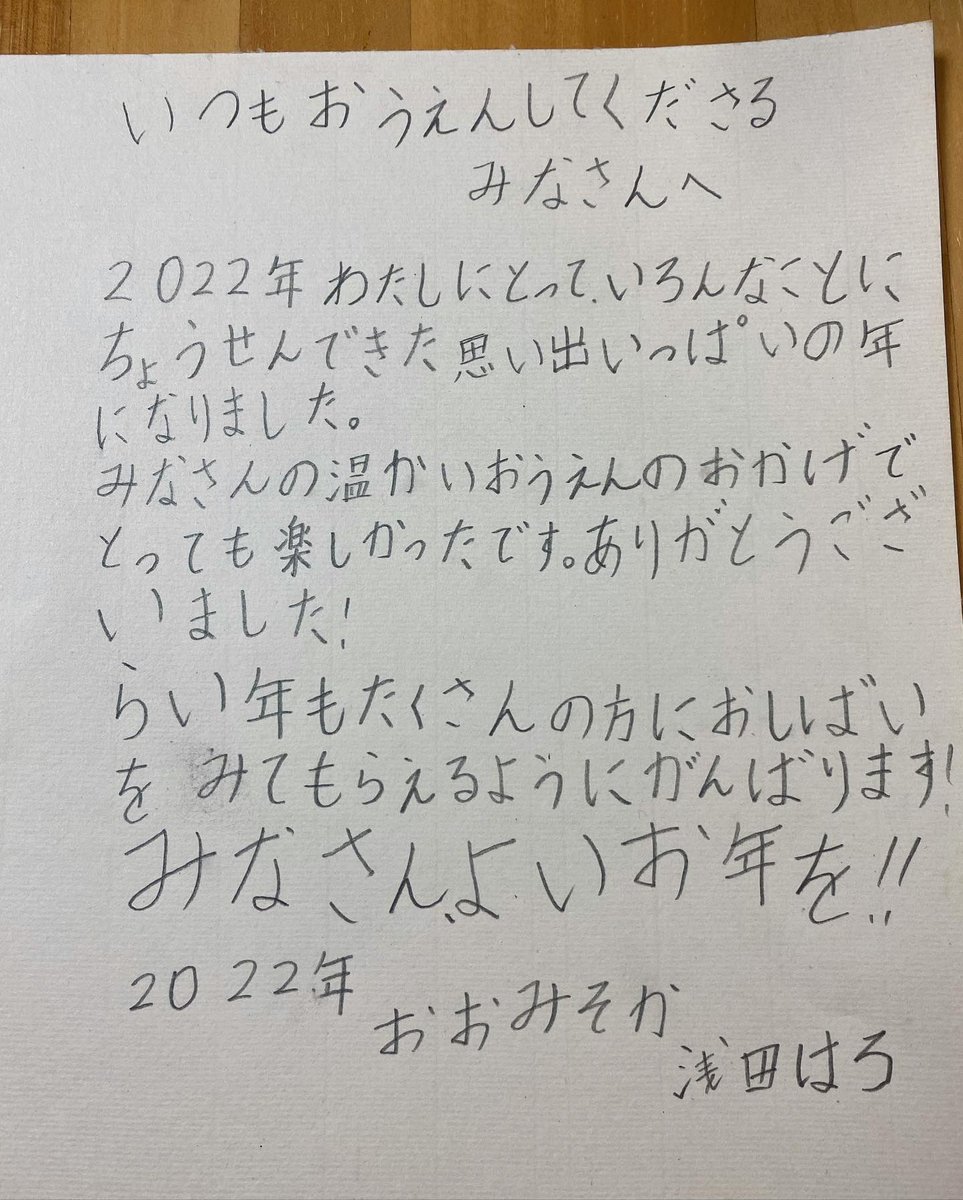 いつもおうえんしてくださる
みなさんへ
2022年わたしにとって、いろんなことに
ちょうせんできた思い出いっぱいの年
になりました。
みなさんの温かいおうえんのおかげで
とっても楽しかったです。ありがとうござ
いました!
らい年もたくさんの方におしばい
をみてもらえるようにがんばります!
みなさん、よいお年を!!
2022年
おおみそか
浅田はろ